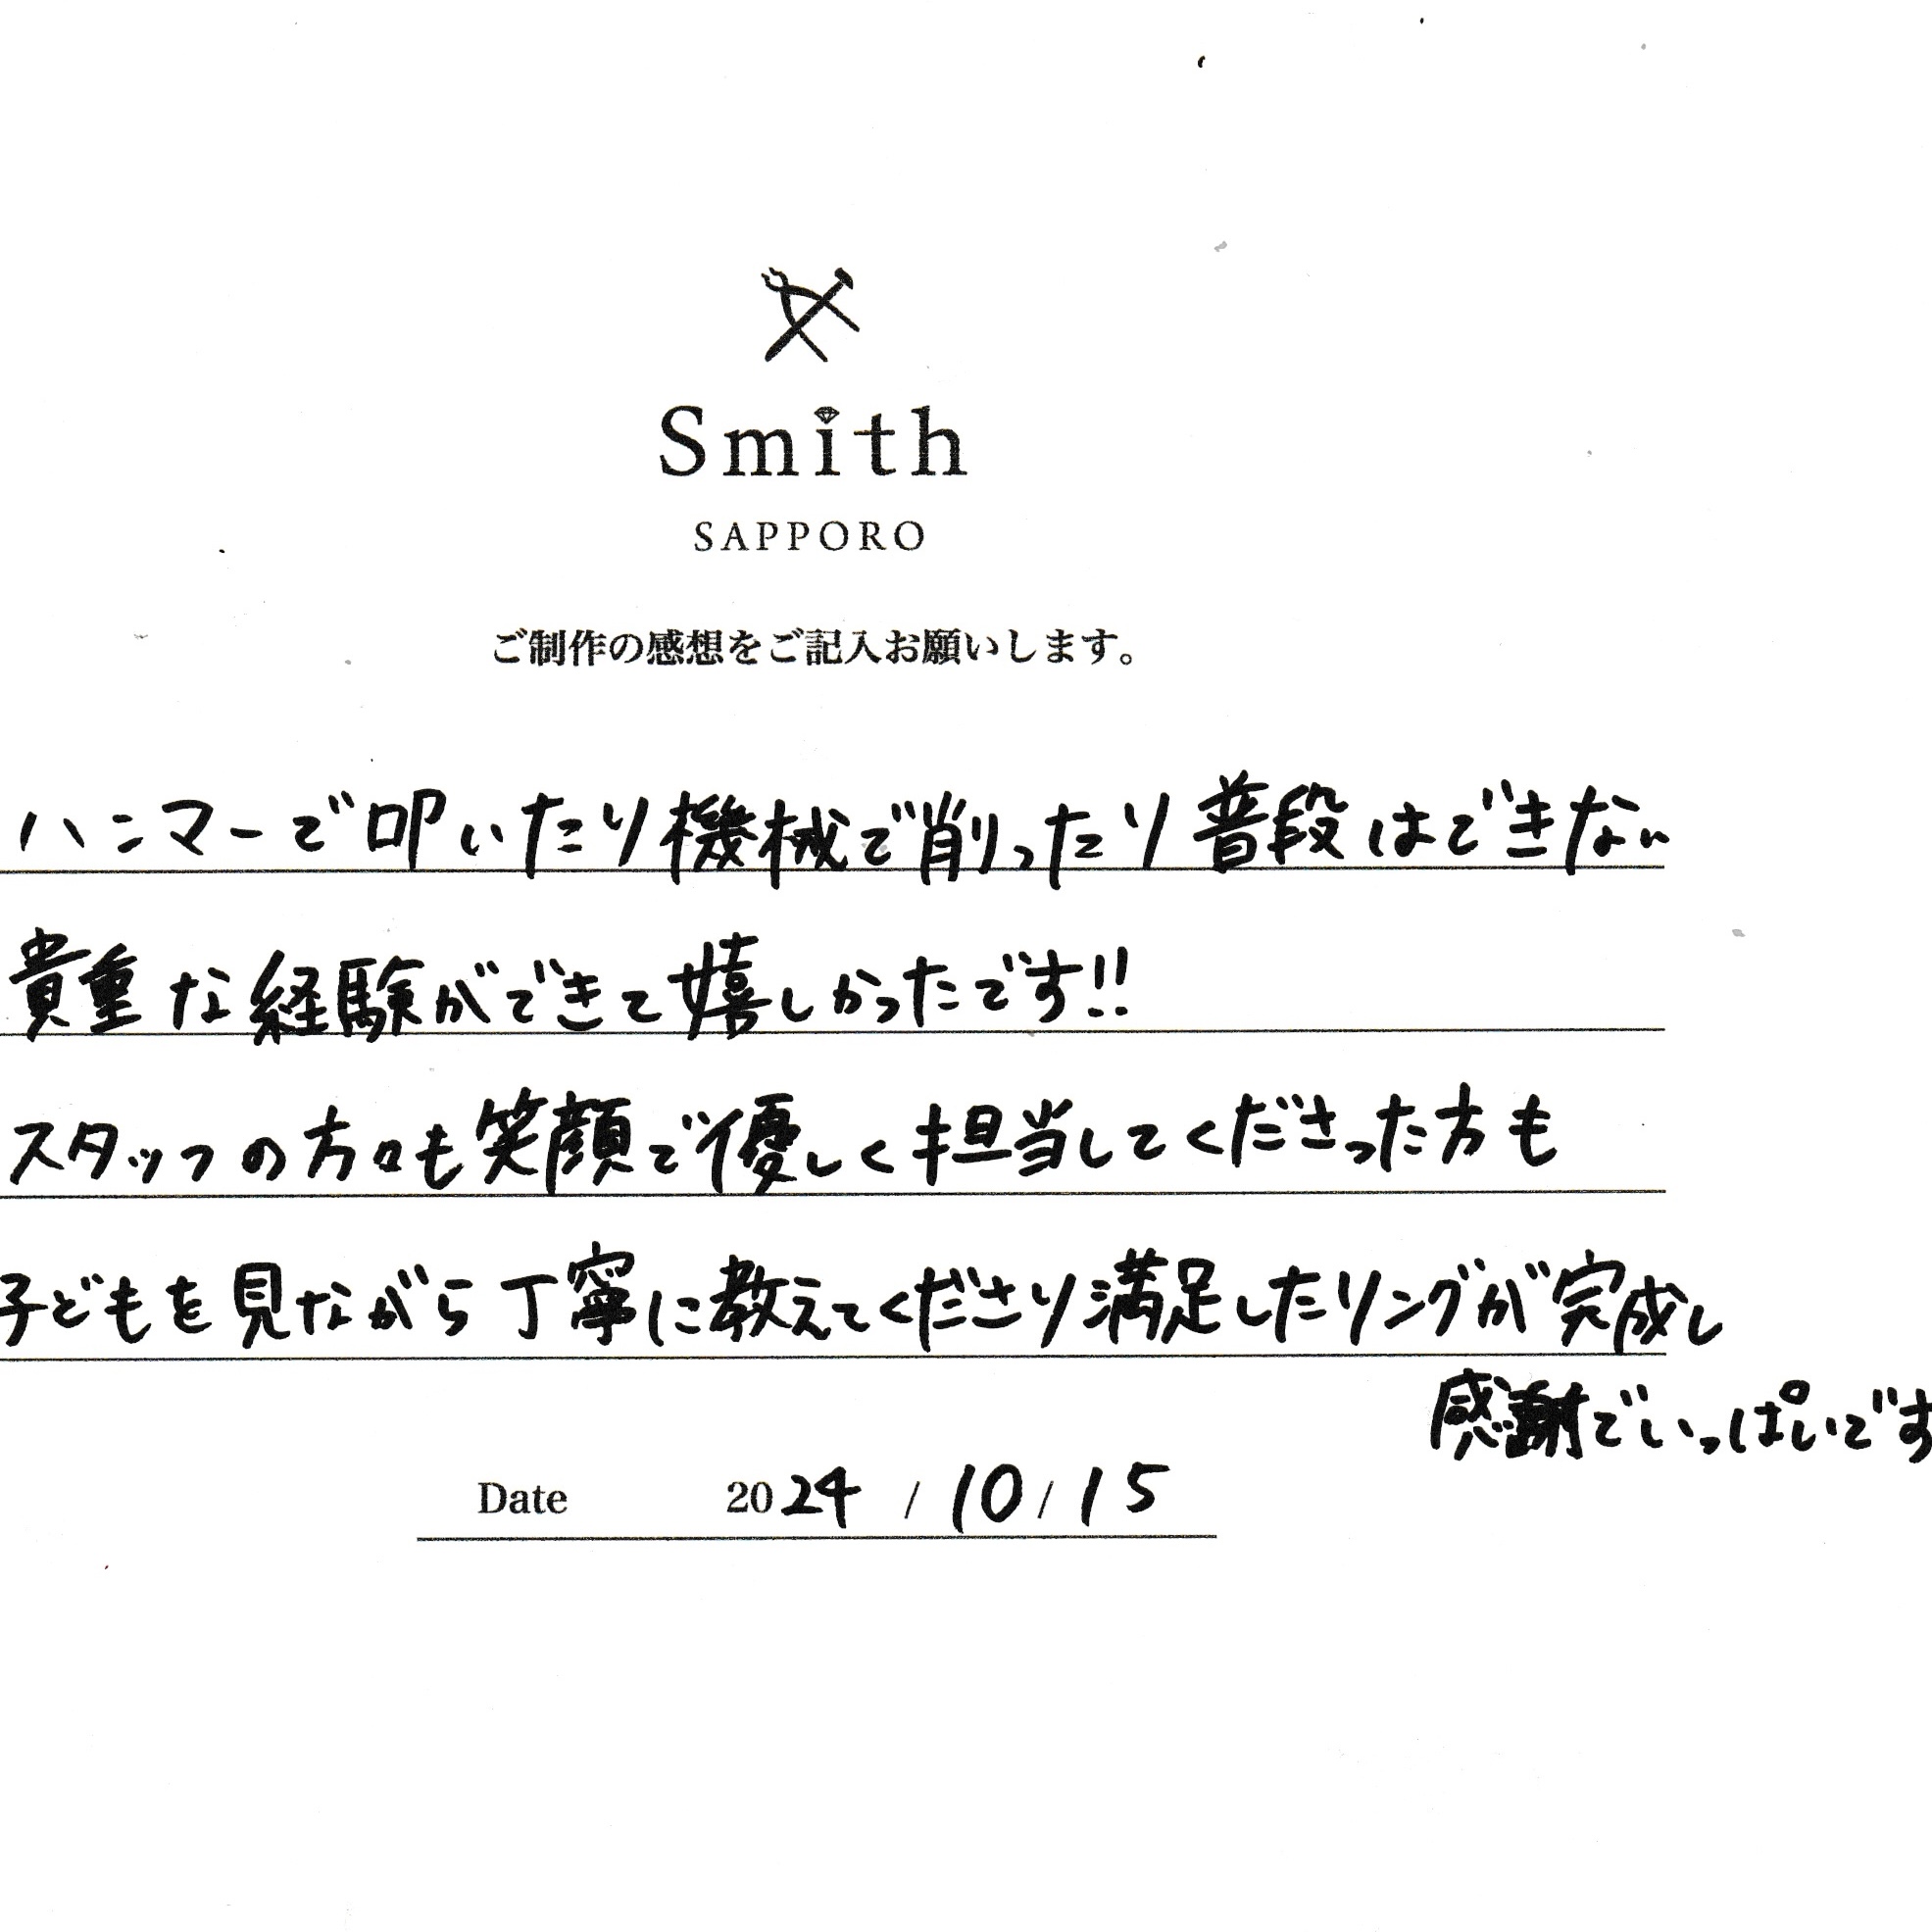 Smith
SAPPORO
ご制作の感想をご記入お願いします。
ハンマーで叩いたり機械で削ったり普段はできない
貴重な経験ができて嬉しかったです!!
スタッフの方々も笑顔で優しく担当してくださった方も
子どもを見ながら丁寧に教えてくださり満足したリングが完成し
感謝でいっぱいです
Date 2024 / 10 / 15